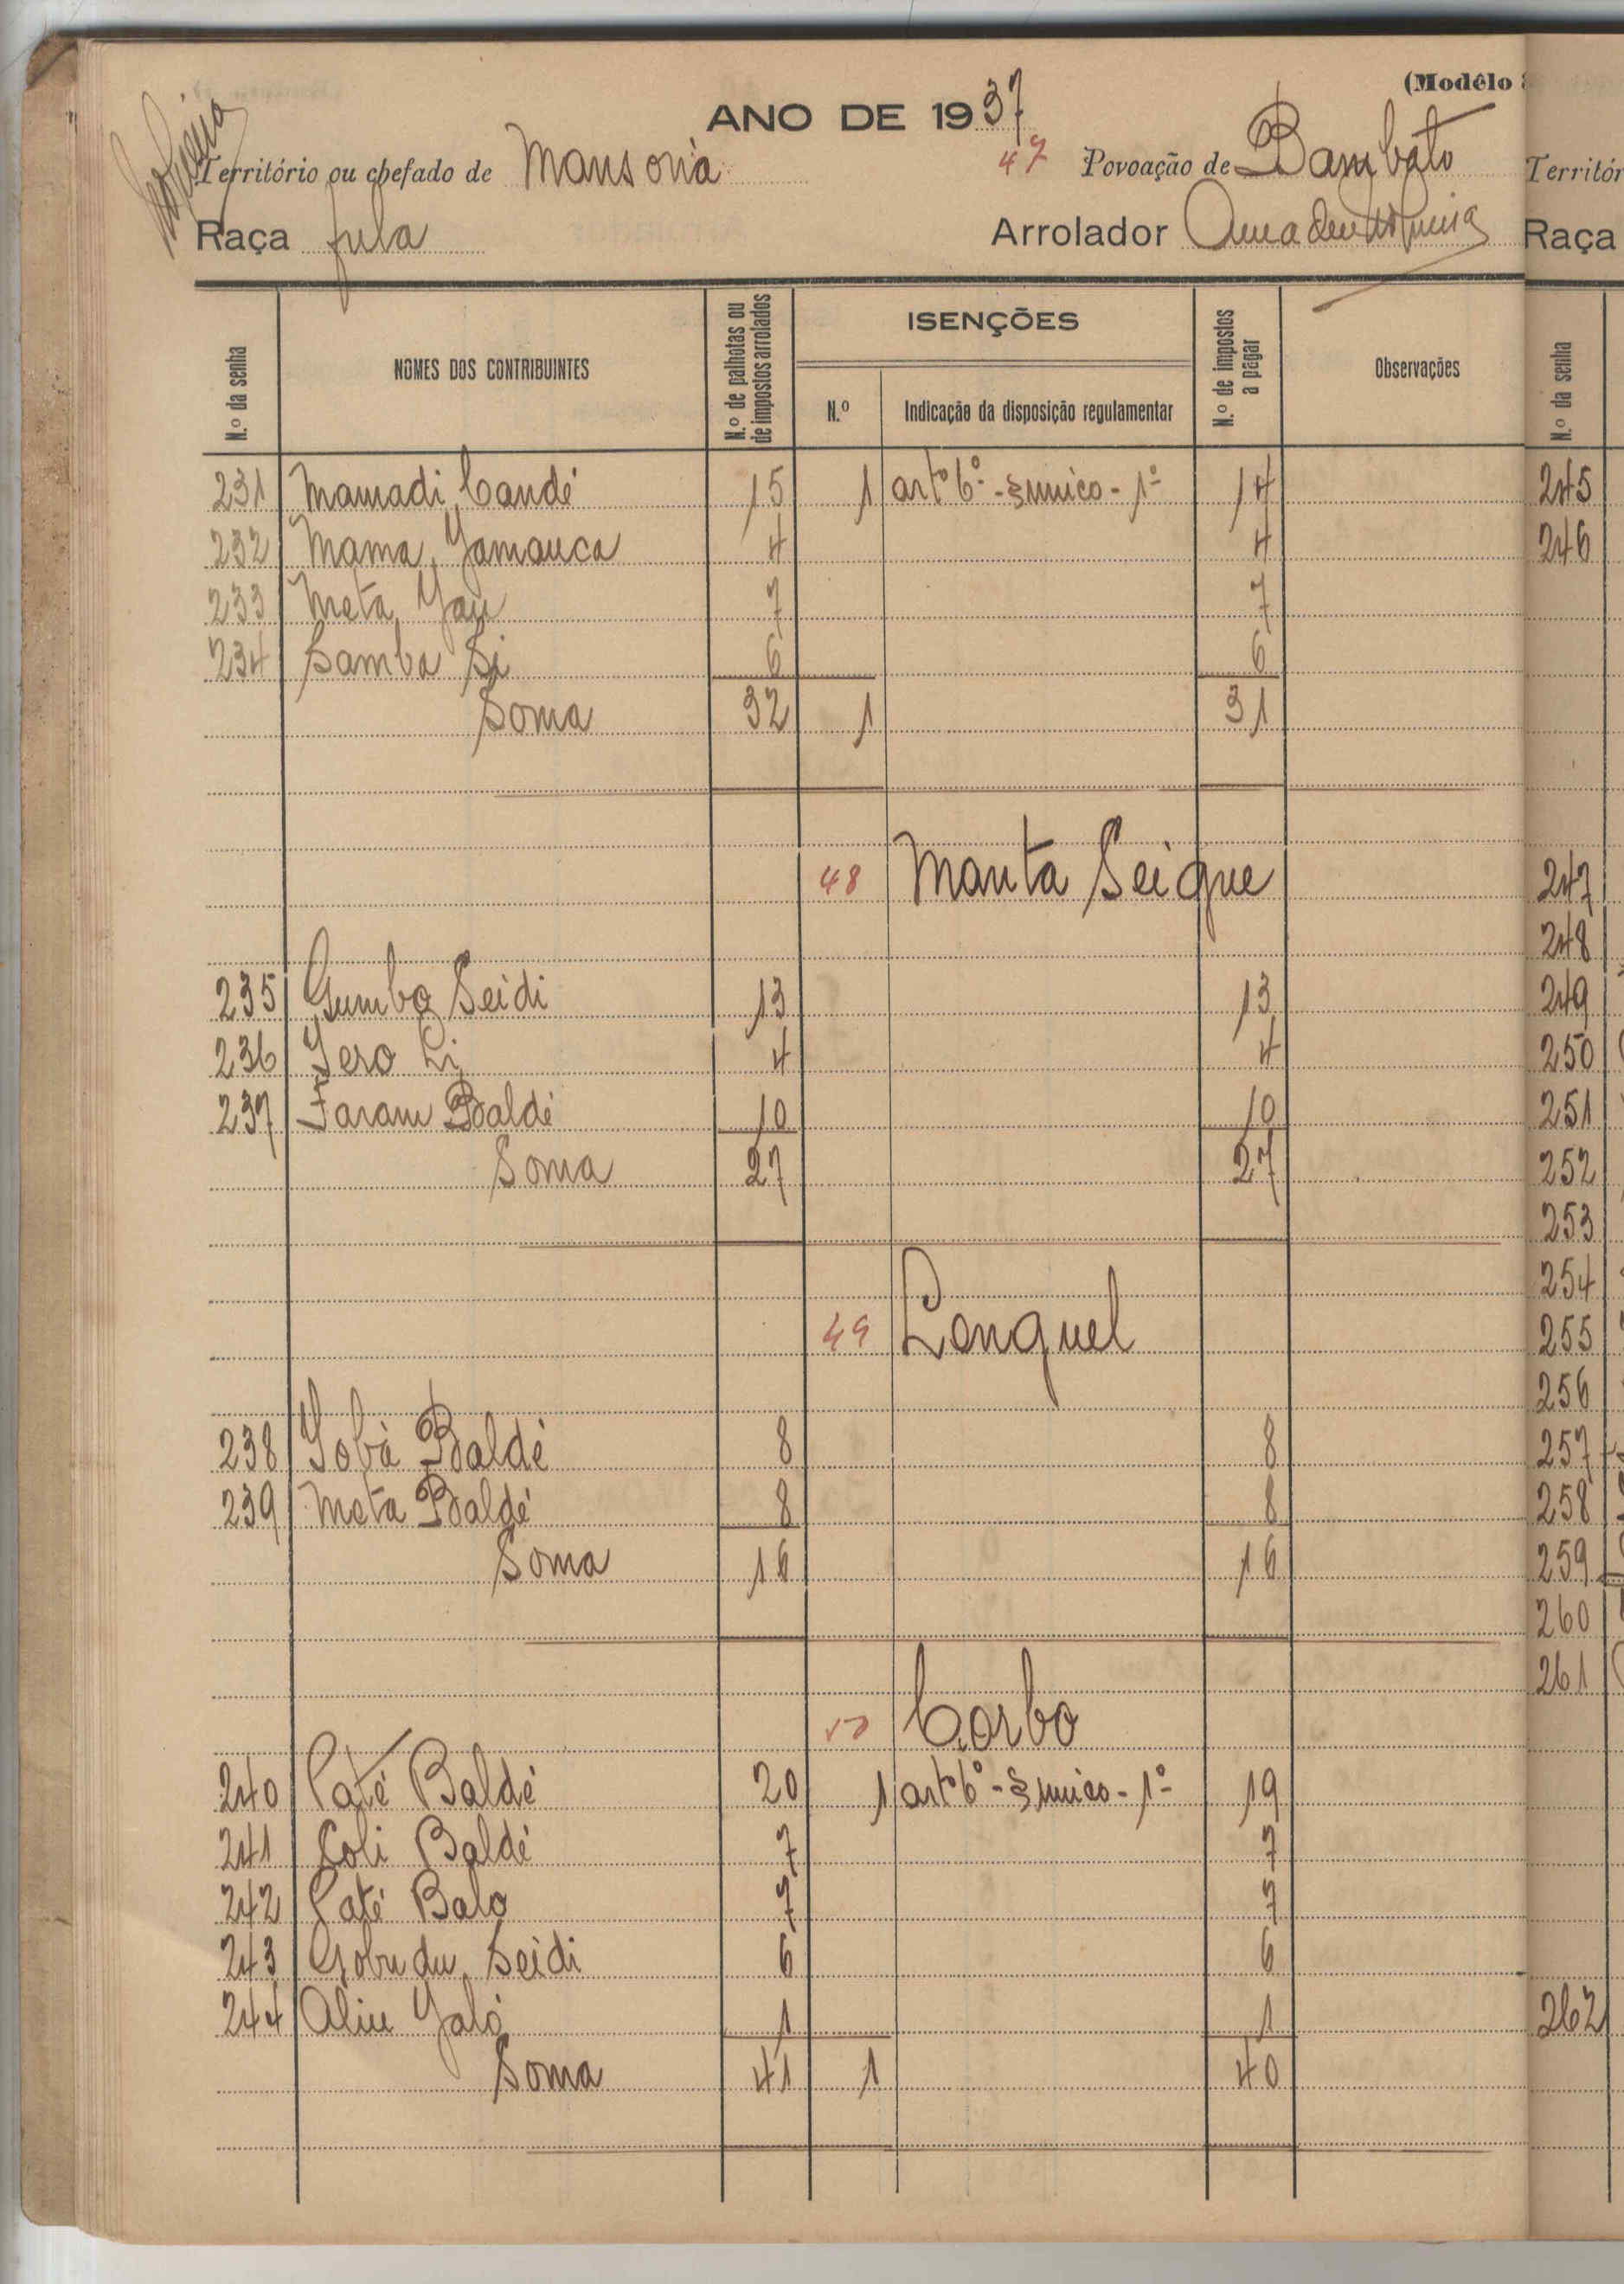 (Modêlo
ANO DE 1937
Território ou chefado de Mansoná 47 Povoação de Bambato
Raça fula Arrolador Amadeu Nogueira
N.º da senha NOMES DOS CONTRIBUINTES N.º de palhotas ou de impostos arrolados ISENÇÕES N.º Indicação da disposição regulamentar N.º de impostos a pagar Observações
231 Mamadi Candé 15 1 artº 6º - § unico - 1º 14
232 Mama Jamanca 4 4
233 Meta Jau 7 7
234 Samba Si 6 6
Soma 32 1 31
48 Manta Seique
235 Gumbo Seidi 13 13
236 Jero Li 4 4
237 Faram Baldé 10 10
Soma 27 27
49 Lenquel
238 Iobà Baldé 8 8
239 Meta Baldé 8 8
Soma 16 16
50 Corbo
240 Paté Baldé 20 1 artº 6º - § unico - 1º 19
241 Coli Baldé 7 7
242 Paté Balo 7 7
243 Gobu du Seidi 6 6
244 Aliu Jaló 1 1
Soma 41 1 40
Territór
Raça
N.º da senha
245
246
247
248
249
250
251
252
253
254
255
256
257
258
259
260
261
262